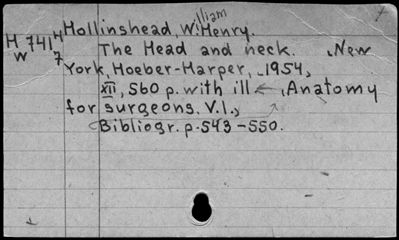 Hollinshead, William Henry.
H 7414
W 7
The Head and neck. New
York, Hoeber-Harper, 1954,
XII, 560 p. with ill ← , Anatomy
for surgeons. V.I.,
Bibliogr. p. 543-550.